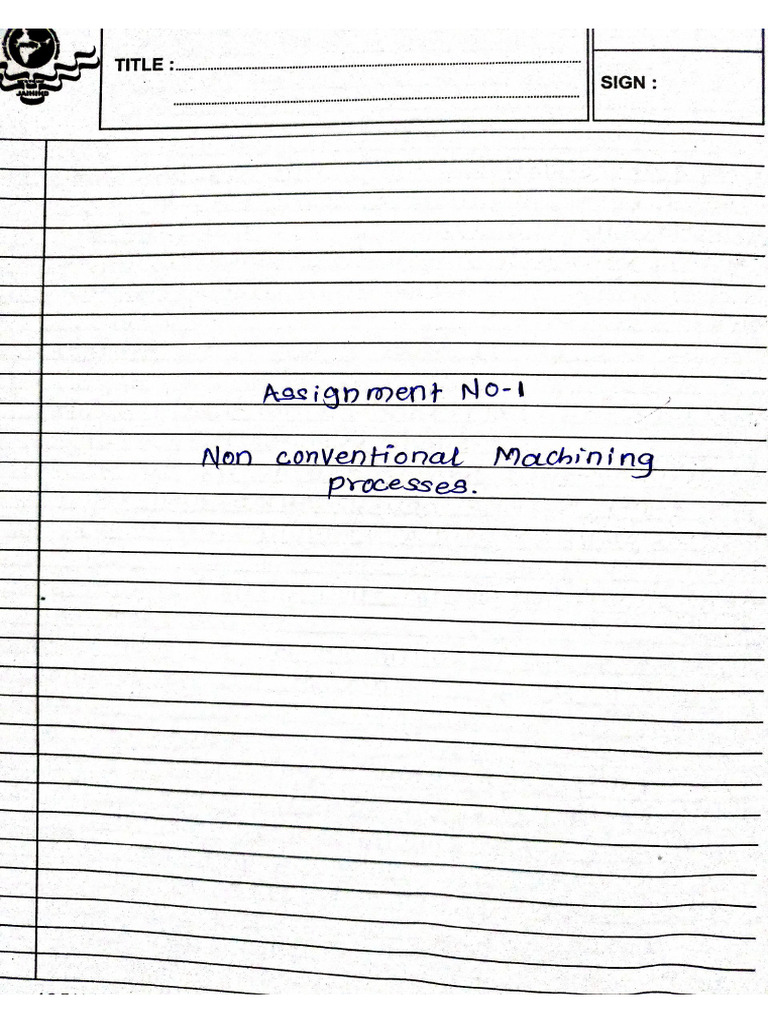 TITLE :
SIGN :
JAIHIND
Assignment No-1
Non conventional Machining
processes.